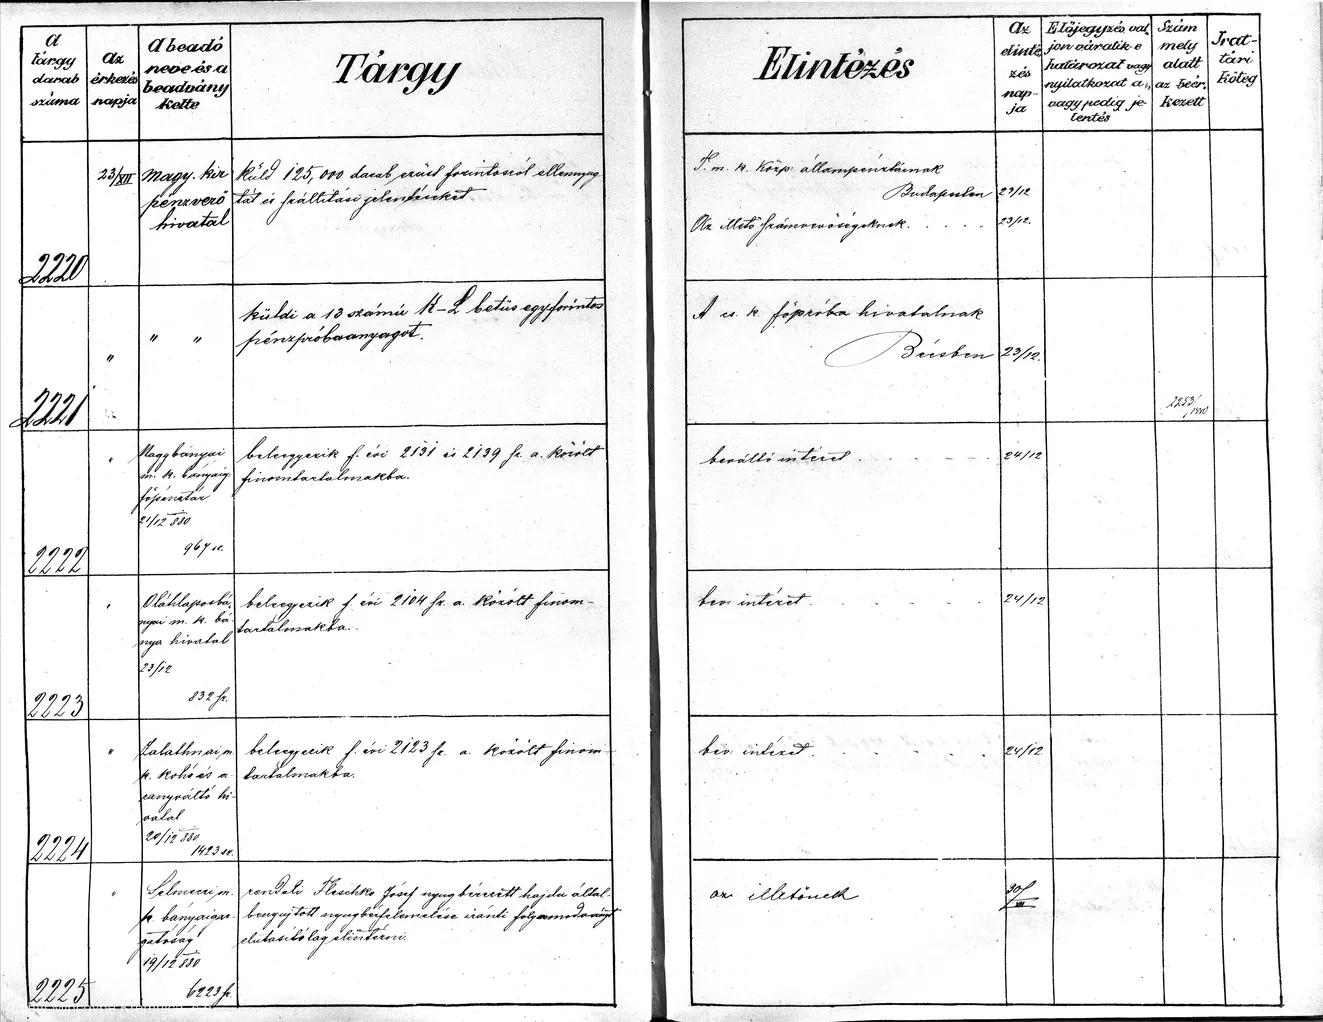 A
tárgy
darab
száma
Az
érkezés
napja
A beadó
neve és a
beadvány
kelte
Tárgy
Elintézés
Az
elinté
zés
nap-
ja
Előjegyzés val
jon váratik-e
határozat vagy
nyilatkozat a,
vagy pedig je-
lentés
Szám
mely
alatt
az beér.
kezett
Irat-
tári
köteg
2220
23/XII
Magy. kir
pénzverő
hivatal
küld 125,000 darab ezüst forintosról ellennyug
tát és szállitási jelentéseket
T. m. k. Közp. állampénztárnak
Budapesten 23/12
Az illető számvevőségeknek. 23/12.
2221
" " "
küldi a 13 számú K-L betüs egyforintos
pénzpróbaanyagot.
A cs. k. főpróba hivatalnak
Bécsben 23/12.
2253/
1880
2222
"
Nagybányai
m. k. bányaig.
főpénztár
21/12 880
967 sz.
beleegyezik f. évi 2131 és 2139 sz. a. közölt
finomtartalmakba.
beváltó intézet . 24/12
2223
"
Oláhlaposbá-
nyai m. k. bá-
nya hivatal
23/12
832 sz.
beleegyezik f. évi 2104 sz. a. közölt finom-
tartalmakba.
bev. intézet . 24/12
2224
"
Zalathnai m.
k. kohó és a-
ranyváltó hi-
vatal
20/12 880
1423 sz.
beleegyezik f. évi 2123 sz. a. közölt finom-
tartalmakba.
bev. intézet . 24/12
2225
"
Selmeczi m.
k. bányaigaz-
gatóság
19/12 880
6223 sz.
rendeli Fleschko József nyugbérezett hajdu által
benyujtott nyugbérfelemelése iránti folyamodványt
elutasitólag elintézni.
az illetőnek
30/XII